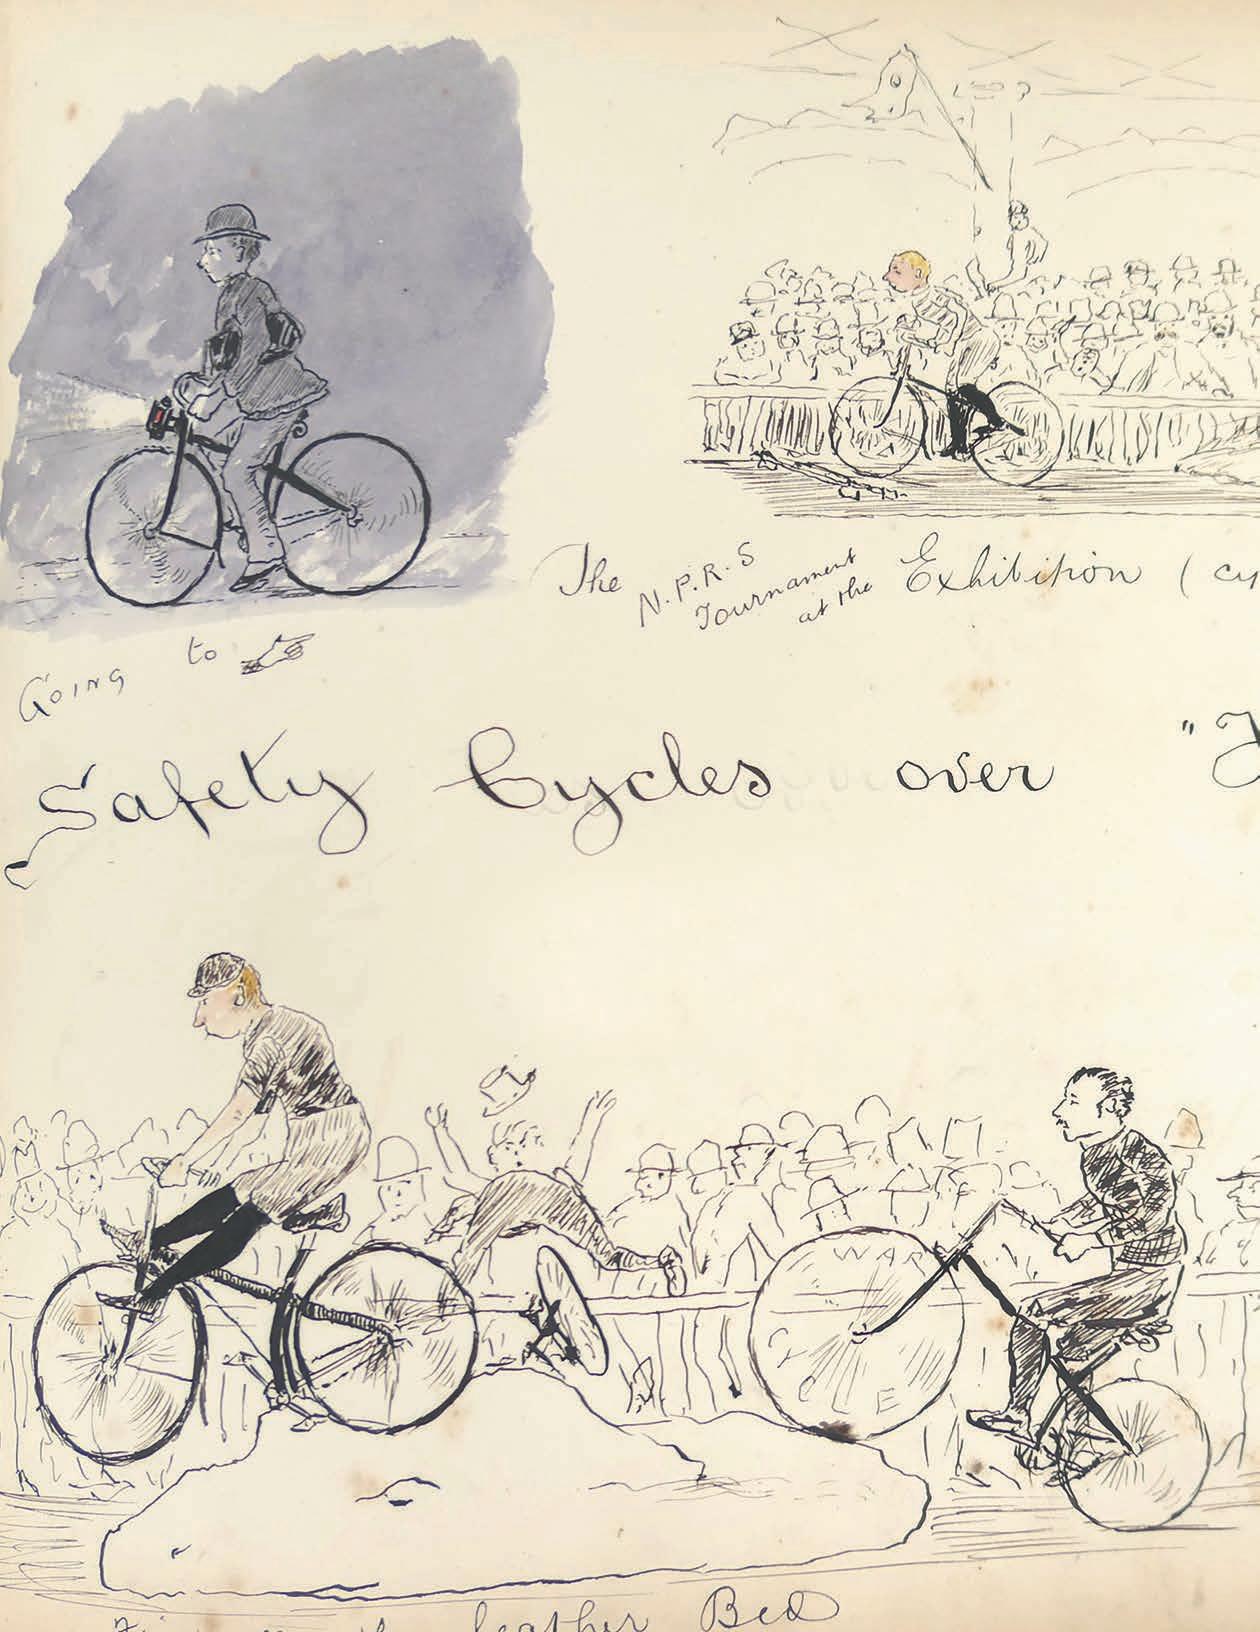 The N.P.R.S
Tournament
at the Exhibition ( cy
Going to
Safety Cycles over "
WAR
C
C L E
feather Bed